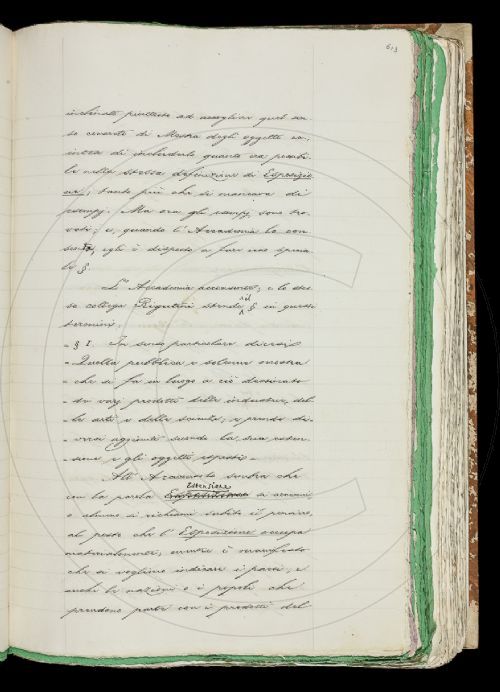 613
inclinato piuttosto ad assegliar quel sen
so concreto di Mostra degli oggetti
di includerlo quanto era possibi
le nella stessa definizione di Esposizio
ne; tanto più che si mancava di
esempj. Ma ora gli esempj sono tro
vati; e, quando l'Accademia lo con
senta, egli è disposto a fare uno specia
le §.
L'Accademia acconsente, e lo stes
so collega Rigutini stende il § in questi
termini:
- § I. In senso particolare dicesi
- Quella pubblica e solenne mostra
- che si fa in luogo a ciò destinato
- de' varj prodotti della industria, del
- le arti e della scienza; e prende di-
- versa aggiunti secondo la sua esten-
- sione e gli oggetti esposti -
All' Accademista sembra che
con la parola Estensione si accenni
o almeno si richiami subito il pensiero,
al posto che l'Esposizione occupa
materialmente, mentre è manifesto
che si vogliono indicare i paesi, e
anche le nazioni o i popoli che
prendono parte con i prodotti del